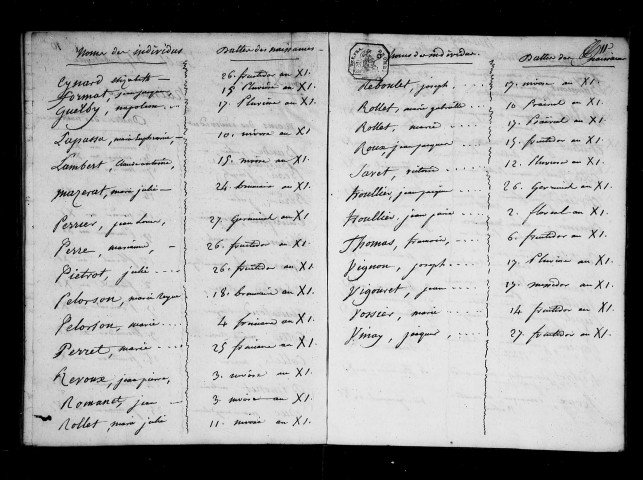 Noms des individus Dattes des naissances
Eynard elizabete 26. fructidor an XI.
format, 15 Pluviose an XI.
Guelby, napoleon 17. Pluviose an XI.
Lapassa, marie Euphrosine, 10. nivose an XI.
Lambert, Claude antoine, 15. nivose an XI.
mazerat, marie julie 24. brumaire an XI.
Perrier, jean Louis, 27. Germinal an XI.
Perre, marianne, 26. fructidor an XI.
Pietrot, julie 26. fructidor an XI.
Pelorson, marie 18. brumaire an XI.
Pelorson, marie 4 frimaire an XI.
Perret, marie 25 frimaire an XI.
Revoux, jean pierre, 3. nivose an XI.
Romanet, jean 3. nivose an XI.
Rollet, marie julie 11. nivose an XI.
Noms des individus. Dattes des naissances
Reboulet, joseph, 17. nivose an XI.
Rollet, marie gabrielle 10 Prairial an XI.
Rollet, marie 17. Prairial an XI.
Roux jean jacques 15. fructidor an XI.
Savet, 12. Pluviose an XI.
Houllier, jean 26. Germinal an XI.
Houllier, jean pierre 2. floreal an XI.
Thomas, francois, 6. fructidor an XI.
Vignon, joseph 17. Pluviose an XI.
Vigouret, jean 17. messidor an XI.
Vossier, marie 14 fructidor an XI.
Vinay, jacques, 27. fructidor an XI.